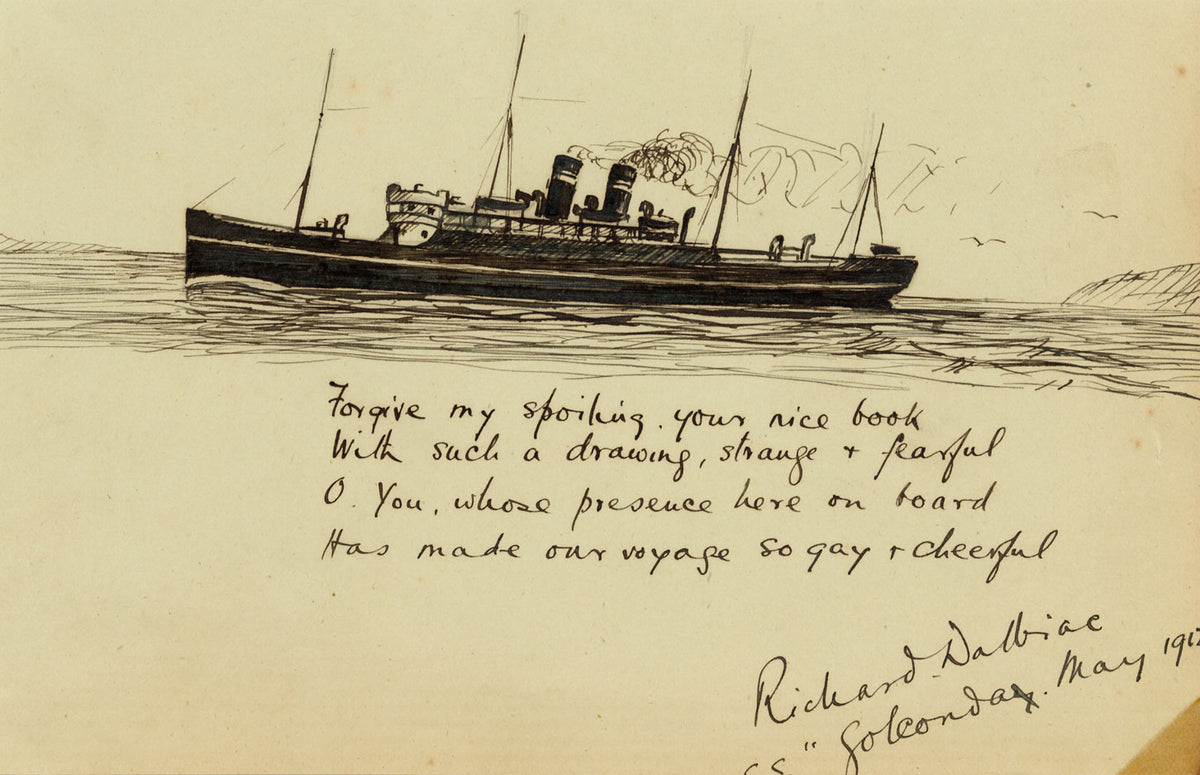 Forgive my spoiling your nice book
With such a drawing, strange + fearful
O. You, whose presence here on board
Has made our voyage so gay + cheerful
Richard Dalbiac
SS "Golconda". May